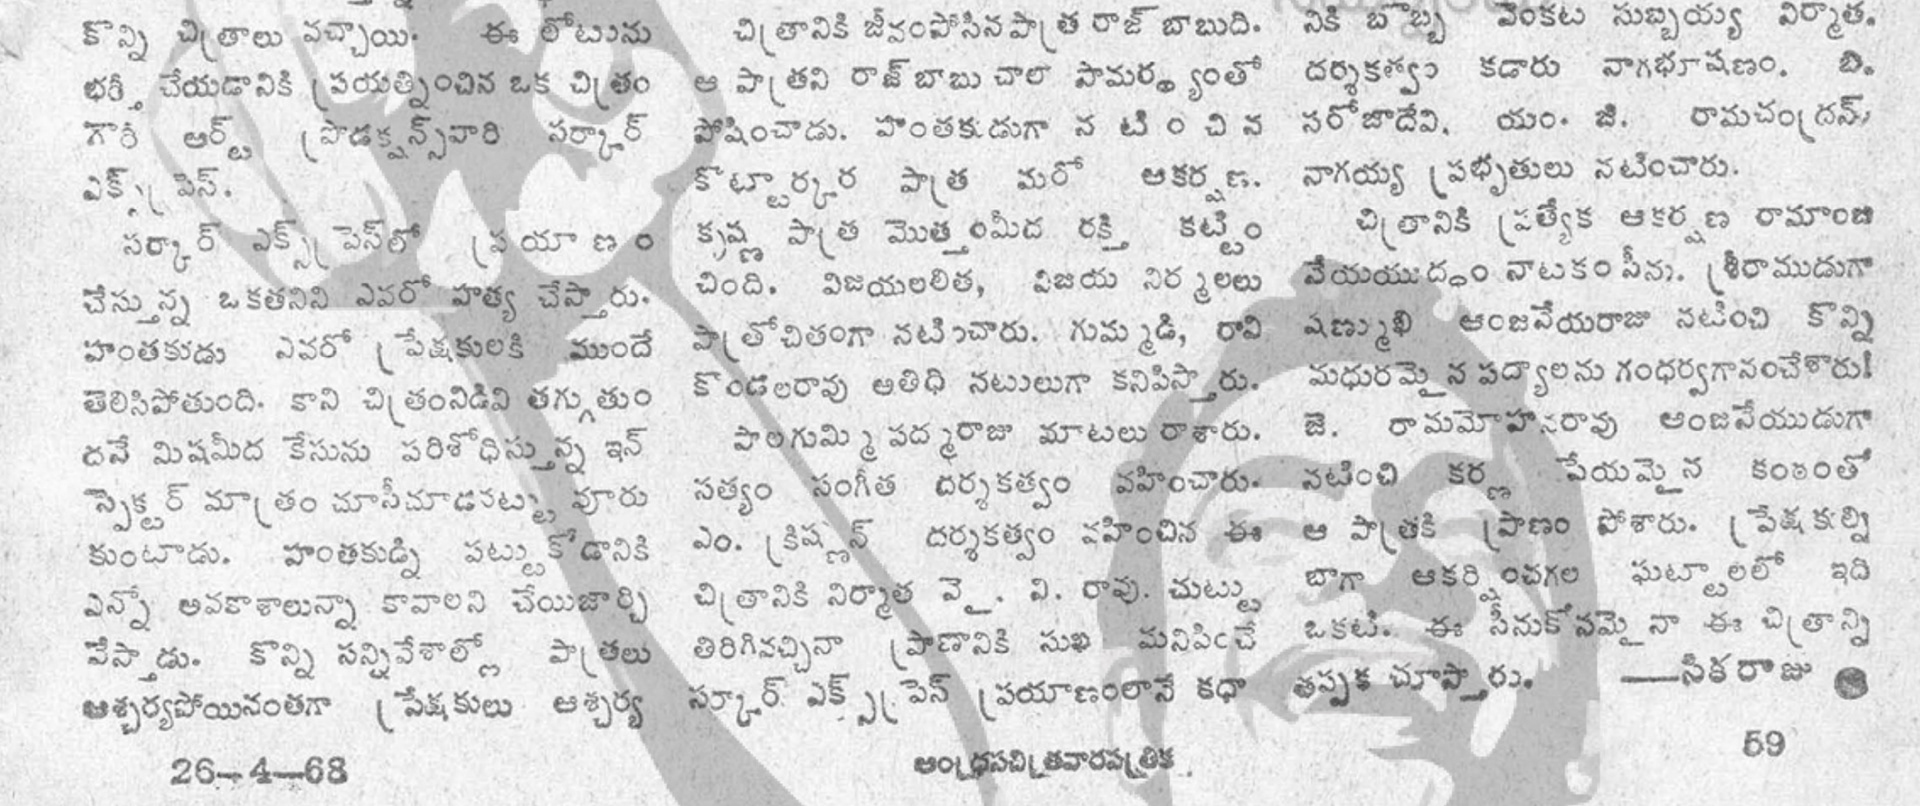 కొన్ని చిత్రాలు వచ్చాయి. ఈ లోటును
భర్తీ చేయడానికి ప్రయత్నించిన ఒక చిత్రం
గౌరీ ఆర్ట్ ప్రొడక్షన్స్‌వారి సర్కార్
ఎక్స్‌ప్రెస్.
సర్కార్ ఎక్స్‌ప్రెస్‌లో ప్రయాణం
చేస్తున్న ఒకతనిని ఎవరో హత్య చేస్తారు.
హంతకుడు ఎవరో ప్రేక్షకులకి ముందే
తెలిసిపోతుంది. కాని చిత్రంనిడివి తగ్గుతుం
దనే మిషమీద కేసును పరిశోధిస్తున్న ఇన్
స్పెక్టర్ మాత్రం చూసీచూడనట్టు వూరు
కుంటాడు. హంతకుడ్ని పట్టుకోడానికి
ఎన్నో అవకాశాలున్నా కావాలని చేయిజార్చి
వేస్తాడు. కొన్ని సన్నివేశాల్లో పాత్రలు
ఆశ్చర్యపోయినంతగా ప్రేక్షకులు ఆశ్చర్య
చిత్రానికి జీవంపోసినపాత్ర రాజ్ బాబుది.
ఆ పాత్రని రాజ్ బాబు చాలా సామర్థ్యంతో
పోషించాడు. హంతకుడుగా నటించిన
కొట్టార్కర పాత్ర మరో ఆకర్షణ.
కృష్ణ పాత్ర మొత్తంమీద రక్తి కట్టిం
చింది. విజయలలిత, విజయ నిర్మలలు
పాత్రోచితంగా నటించారు. గుమ్మడి, రావి
కొండలరావు అతిథి నటులుగా కనిపిస్తారు.
పాలగుమ్మి పద్మరాజు మాటలు రాశారు.
సత్యం సంగీత దర్శకత్వం వహించారు.
ఎం. క్రిష్ణన్ దర్శకత్వం వహించిన ఈ
చిత్రానికి నిర్మాత వై. వి. రావు. చుట్టు
తిరిగివచ్చినా ప్రాణానికి సుఖ మనిపించే
సర్కార్ ఎక్స్‌ప్రెస్ ప్రయాణంలానే కథా
నికి బొబ్బ వెంకట సుబ్బయ్య నిర్మాత.
దర్శకత్వం కడారు నాగభూషణం. బి.
సరోజాదేవి, యం. జి. రామచంద్రన్,
నాగయ్య ప్రభృతులు నటించారు.
చిత్రానికి ప్రత్యేక ఆకర్షణ రామాంజ
నేయయుద్ధం నాటకం సీను. శ్రీరాముడుగా
షణ్ముఖి ఆంజనేయరాజు నటించి కొన్ని
మధురమైన పద్యాలను గంధర్వగానంచేశారు!
జె. రామమోహనరావు ఆంజనేయుడుగా
నటించి కర్ణ పేయమైన కంఠంతో
ఆ పాత్రకి ప్రాణం పోశారు. ప్రేక్షకుల్ని
బాగా ఆకర్షించగల ఘట్టాలలో ఇది
ఒకటి. ఈ సీనుకోసమైనా ఈ చిత్రాన్ని
తప్పక చూస్తారు. —సికరాజు
26-4-68
ఆంధ్రసచిత్రవారపత్రిక
59